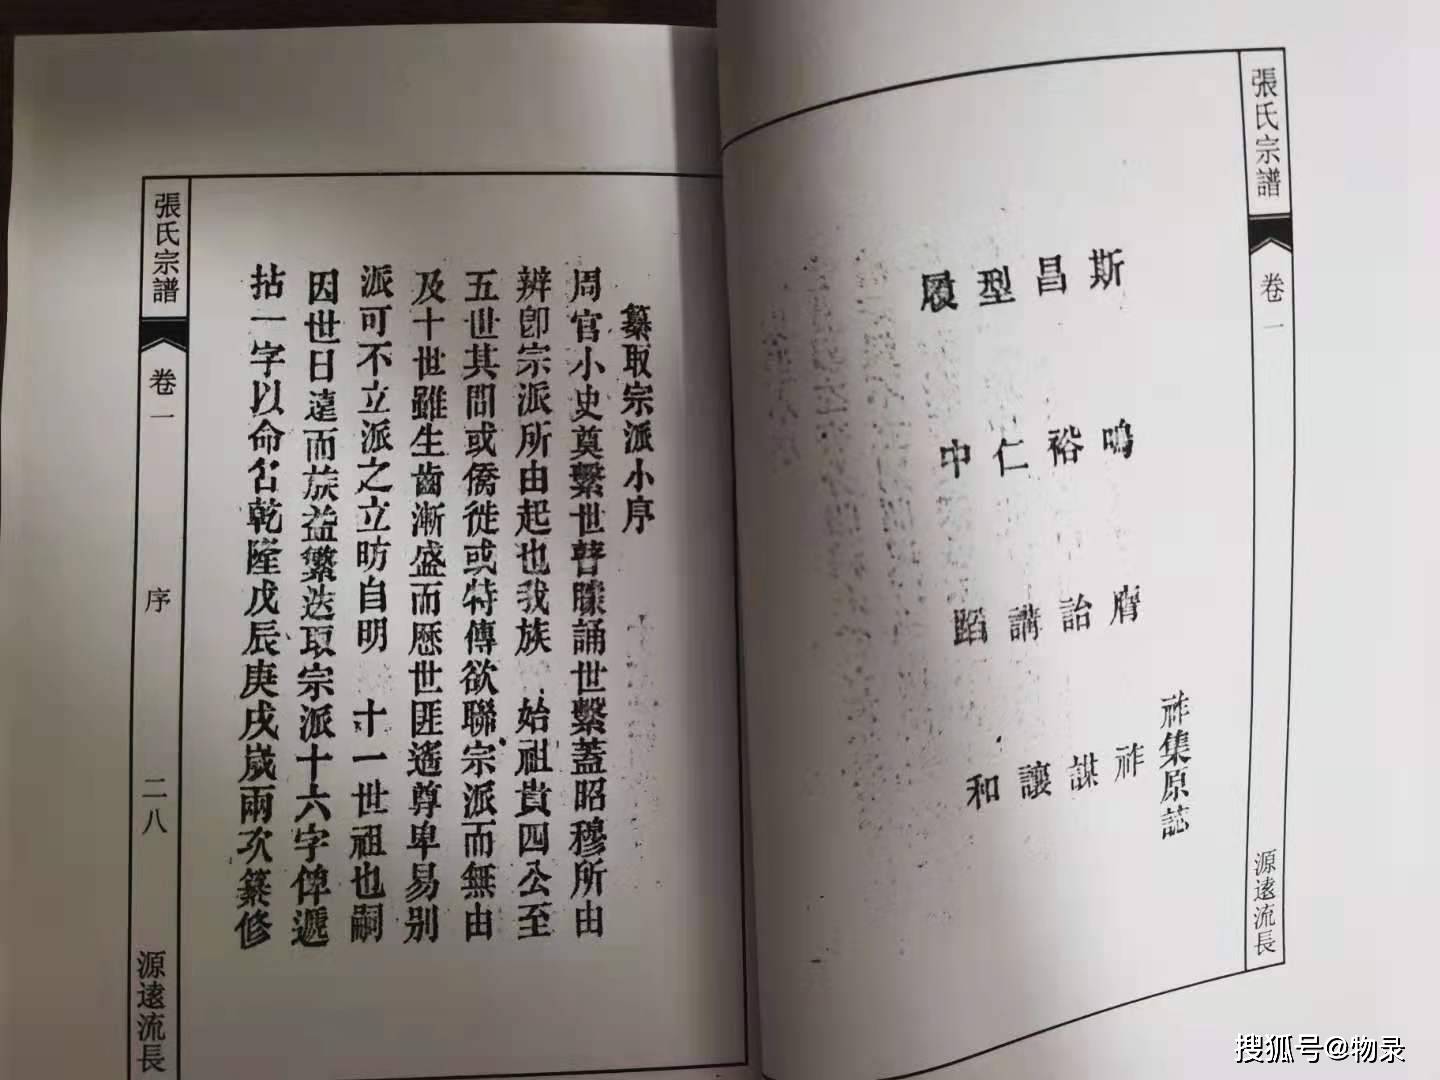 張氏宗譜
卷一
源逺流長
祚集原誌
斯鳴膺祚
昌裕詒謀
型仁講讓
履中蹈和
纂取宗派小序
周官小史奠繫世瞽矇誦世繫蓋昭穆所由
辨卽宗派所由起也我族 始祖貴四公至
五世其間或僑徙或特傳欲聯宗派而無由
及十世雖生齒漸盛而歷世匪遙尊卑易別
派可不立派之立昉自明 十一世祖也嗣
因世日逺而族益繁迭取宗派十六字俾遞
拈一字以命名乾隆戊辰庚戌歲兩次纂修
張氏宗譜
卷一
序
二八
源逺流長
搜狐号@物录